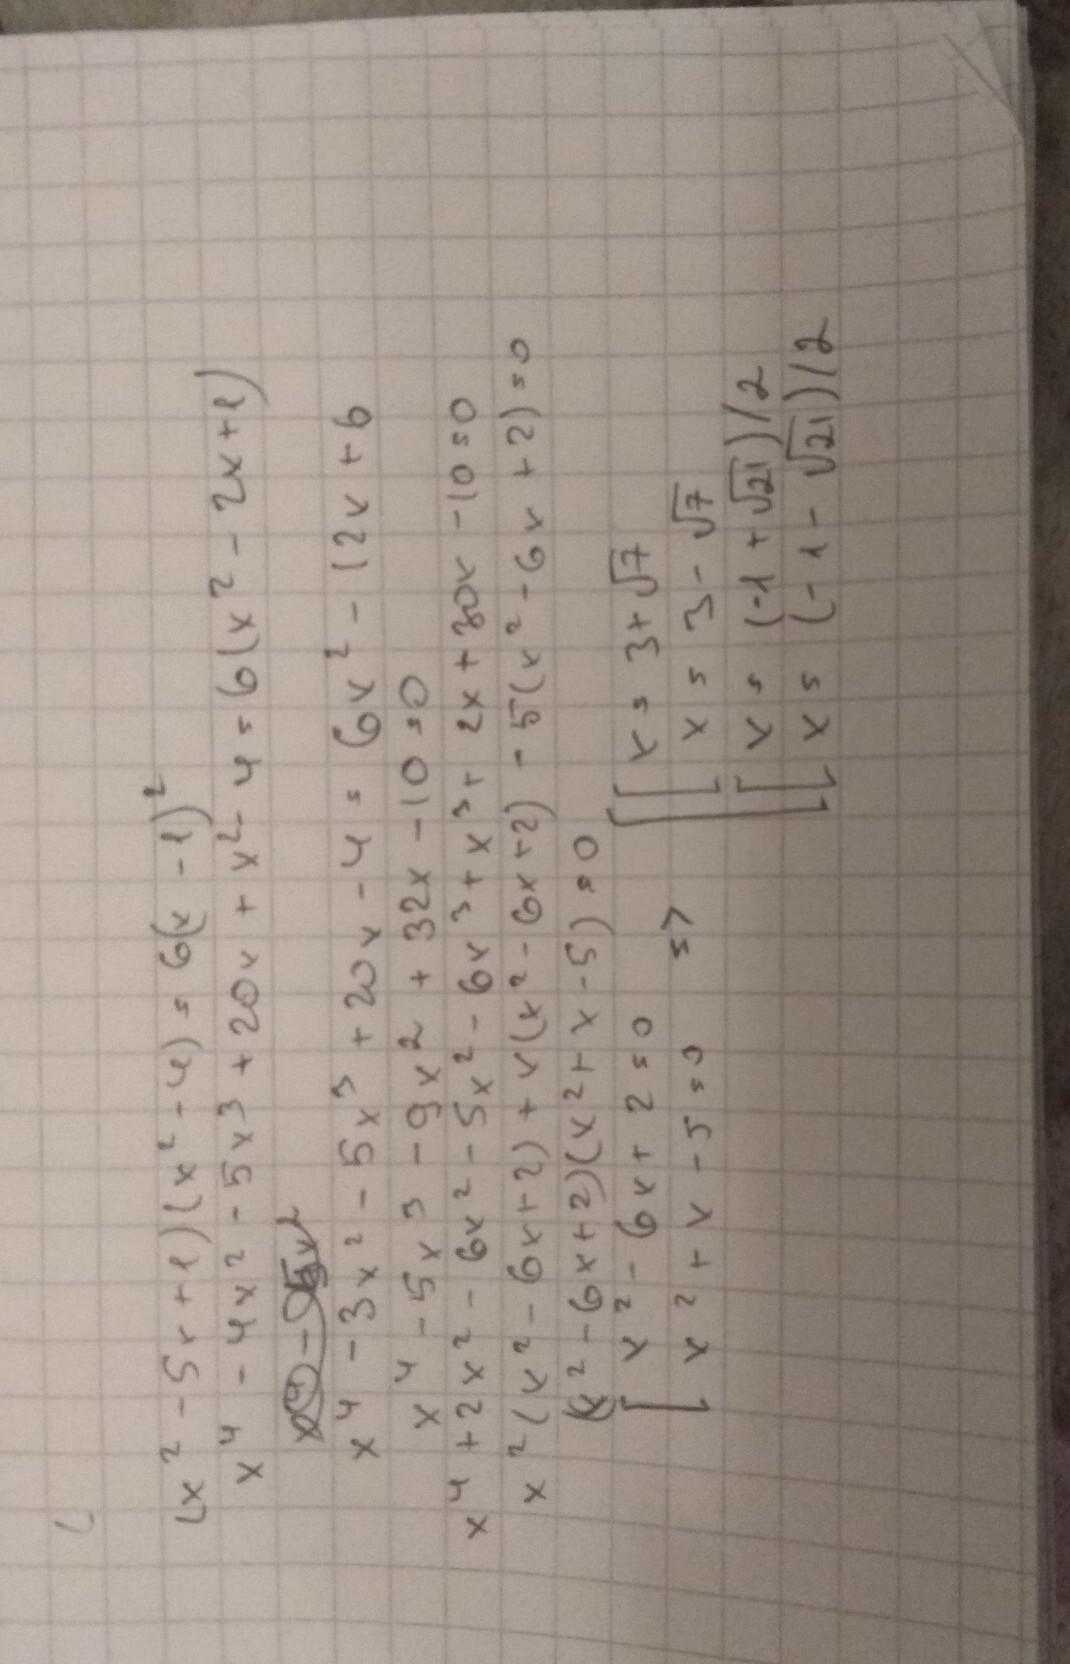 (x² - 5x + 1)(x² - 4) = 6(x - 1)²
x⁴ - 4x² - 5x3 + 20x + x² - 4 = 6(x² - 2x + 1)
x⁴ - 3x² - 5x³ + 20x - 4 = 6x² - 12x + 6
x⁴ - 5x³ - 9x² + 32x - 10 = 0
x⁴ + 2x² - 6x² - 5x² - 6x³ + x³ + 2x + 30x - 10 = 0
x²(x² - 6x + 2) + x(x² - 6x + 2) - 5(x² - 6x + 2) = 0
(x² - 6x + 2)(x² + x - 5) = 0
[ x² - 6x + 2 = 0
[ x² + x - 5 = 0 =>
[ x = 3 + √7
[ x = 3 - √7
[ x = (-1 + √21)/2
[ x = (-1 - √21)/2